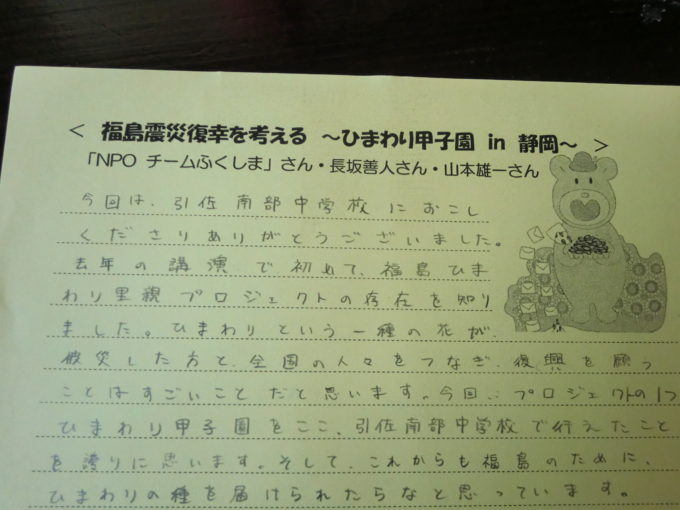 < 福島震災復幸を考える ～ひまわり甲子園 in 静岡～ >
「NPO チームふくしま」さん・長坂善人さん・山本雄一さん
今回は、引佐南部中学校におこし
くださりありがとうございました。
去年の講演で初めて、福島ひま
わり里親プロジェクトの存在を知り
ました。ひまわりという一種の花が、
被災した方と、全国の人々をつなぎ、復興を願う
ことはすごいことだと思います。今回、プロジェクトの1つ
ひまわり甲子園をここ、引佐南部中学校で行えたこと
を誇りに思います。そして、これからも福島のために、
ひまわりの種を届けられたらなと思っています。